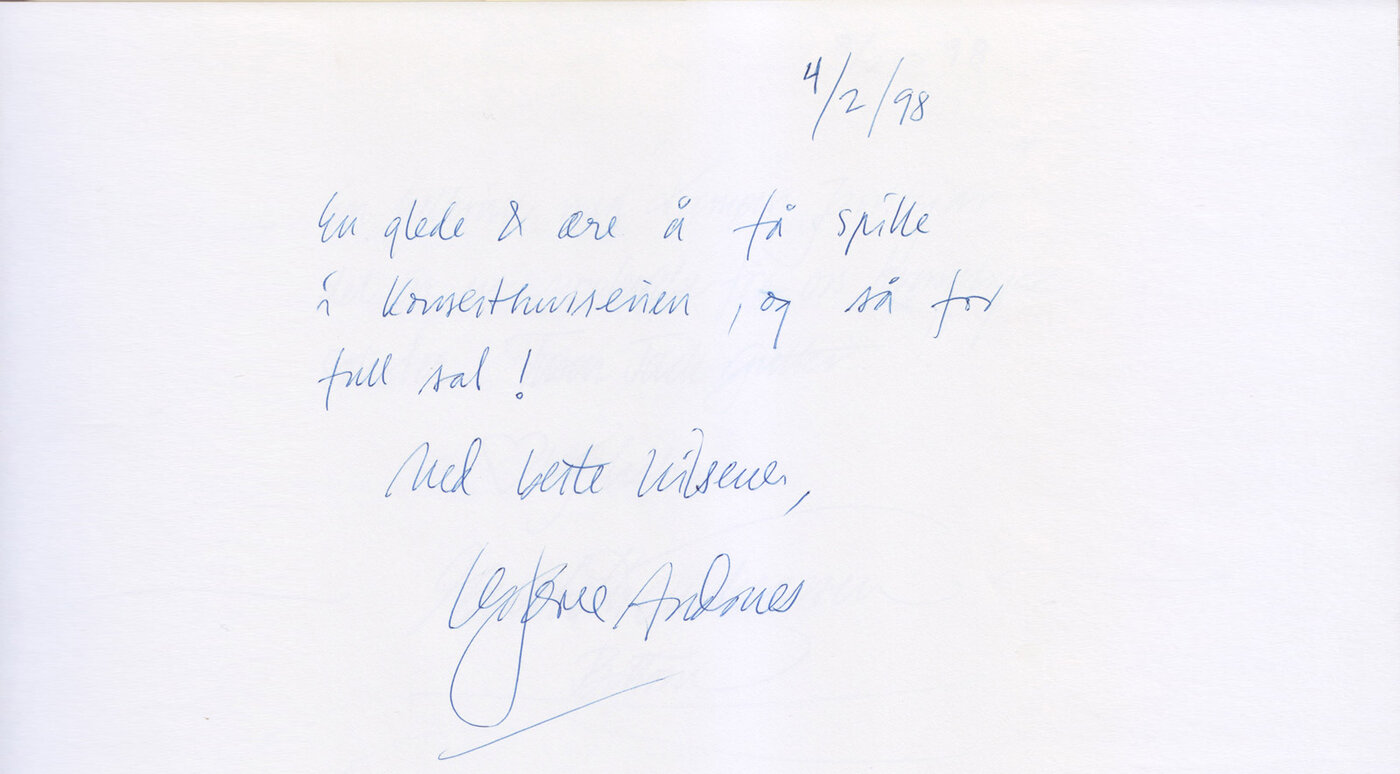 4/2/98
En glede & ære å få spille
i Konserthusserien, og så for
full sal!
Med beste hilsener,
Leif Ove Andsnes